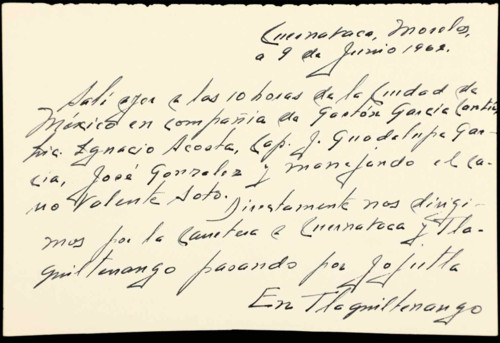 Cuernavaca, Morelos,
a 9 de Junio 1962.
Salí ayer a las 10 horas de la Ciudad de
México en compañia de Gastón García Cantú,
Ignacio Acosta, Cap. J. Guadalupe Gar-
cia, José Gonzalez y manejando el ca-
rro Valente Soto.
Directamente nos dirigi-
mos por la carretera a Cuernavaca y Tla-
quiltenango pasando por Jojutla
En Tlaquiltenango